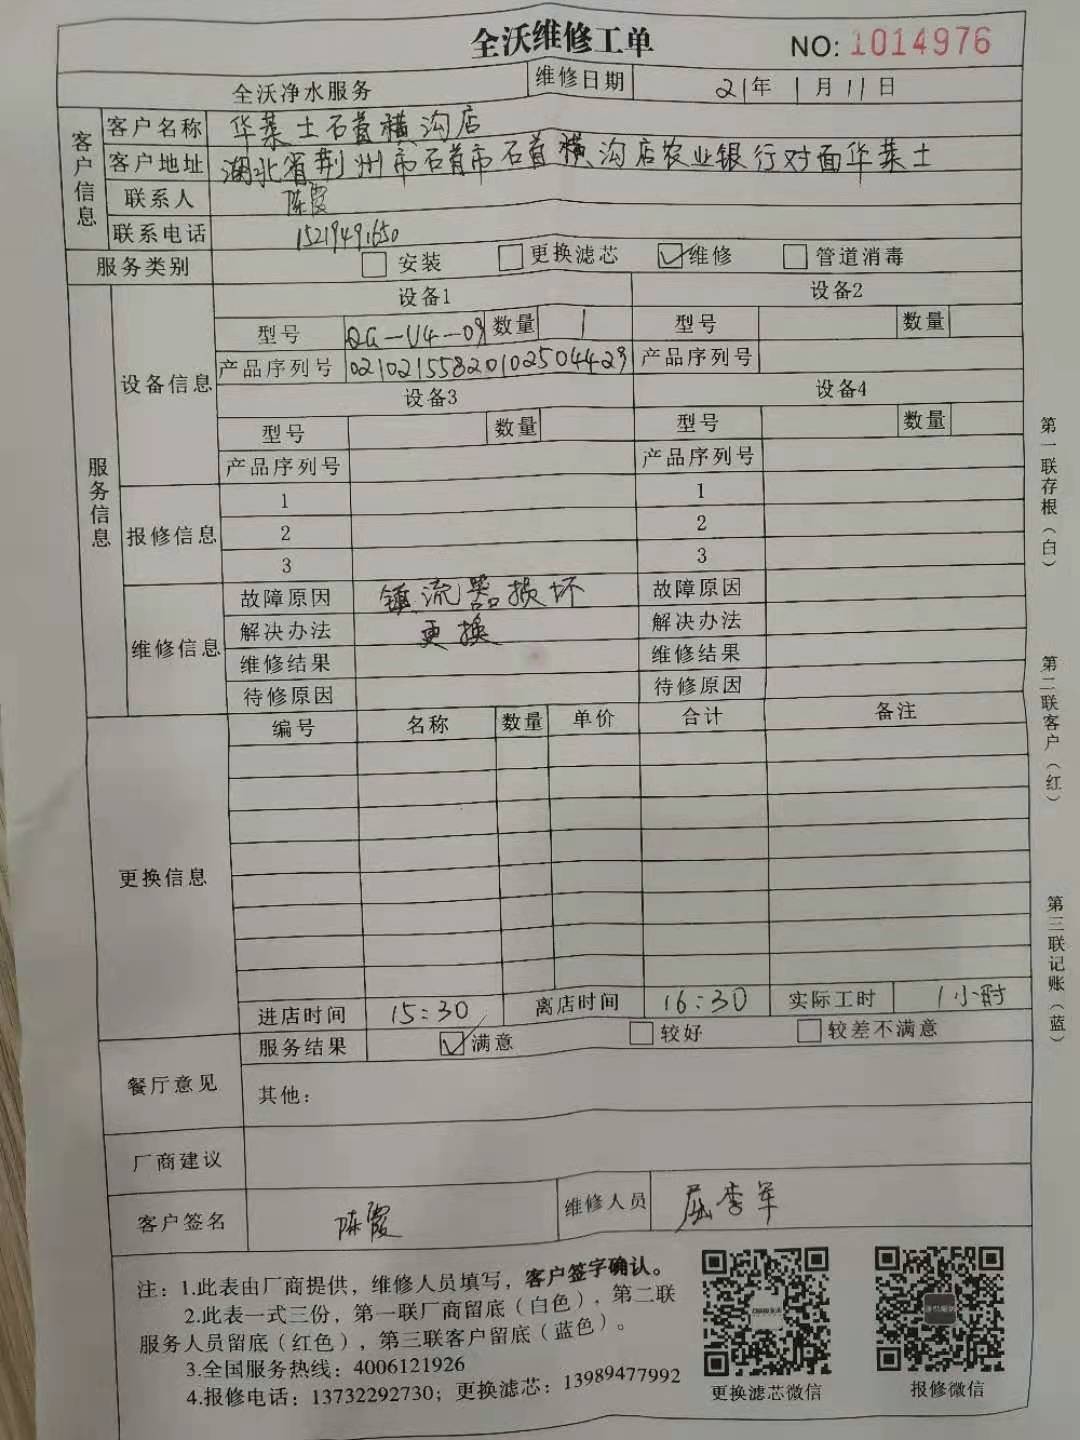 全沃维修工单
NO: 1014976
全沃净水服务 维修日期 21年 1月11日
客户信息
客户名称 华莱士石首横沟店
客户地址 湖北省荆州市石首市石首横沟店农业银行对面华莱士
联系人 陈霞
联系电话 15219491650
服务类别 安装 更换滤芯 维修 管道消毒
服务信息
设备信息
设备1 设备2
型号 QG-U4-09 数量 1 型号 数量
产品序列号 02102155820102504429 产品序列号
设备3 设备4
型号 数量 型号 数量
产品序列号 产品序列号
报修信息
1 1
2 2
3 3
维修信息
故障原因 镇流器损坏 故障原因
解决办法 更换 解决办法
维修结果 维修结果
待修原因 待修原因
更换信息
编号 名称 数量 单价 合计 备注
进店时间 15:30 离店时间 16:30 实际工时 1小时
餐厅意见
服务结果 满意 较好 较差不满意
其他：
厂商建议
客户签名 陈霞 维修人员 屈李军
注：1.此表由厂商提供，维修人员填写，客户签字确认。
2.此表一式三份，第一联厂商留底（白色），第二联
服务人员留底（红色），第三联客户留底（蓝色）。
3.全国服务热线：4006121926
4.报修电话：13732292730；更换滤芯：13989477992
更换滤芯微信 报修微信
第一联存根（白）
第二联客户（红）
第三联记账（蓝）